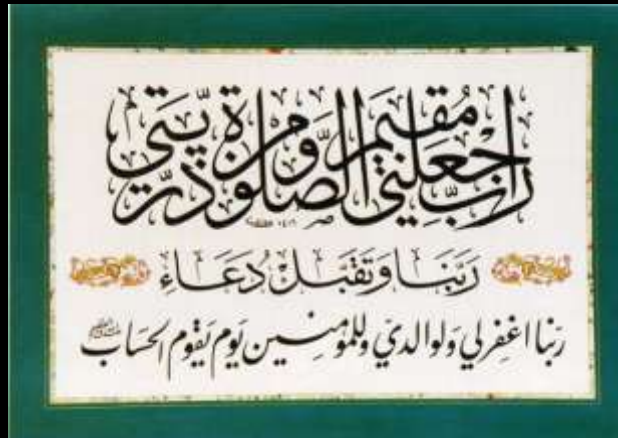 رَبِّ اجْعَلْنِي مُقِيمَ الصَّلٰوةِ وَمِنْ ذُرِّيَّتِي
رَبَّنَا وَتَقَبَّلْ دُعَاءِ
رَبَّنَا اغْفِرْ لِي وَلِوَالِدَيَّ وَلِلْمُؤْمِنِينَ يَوْمَ يَقُومُ الْحِسَابُ